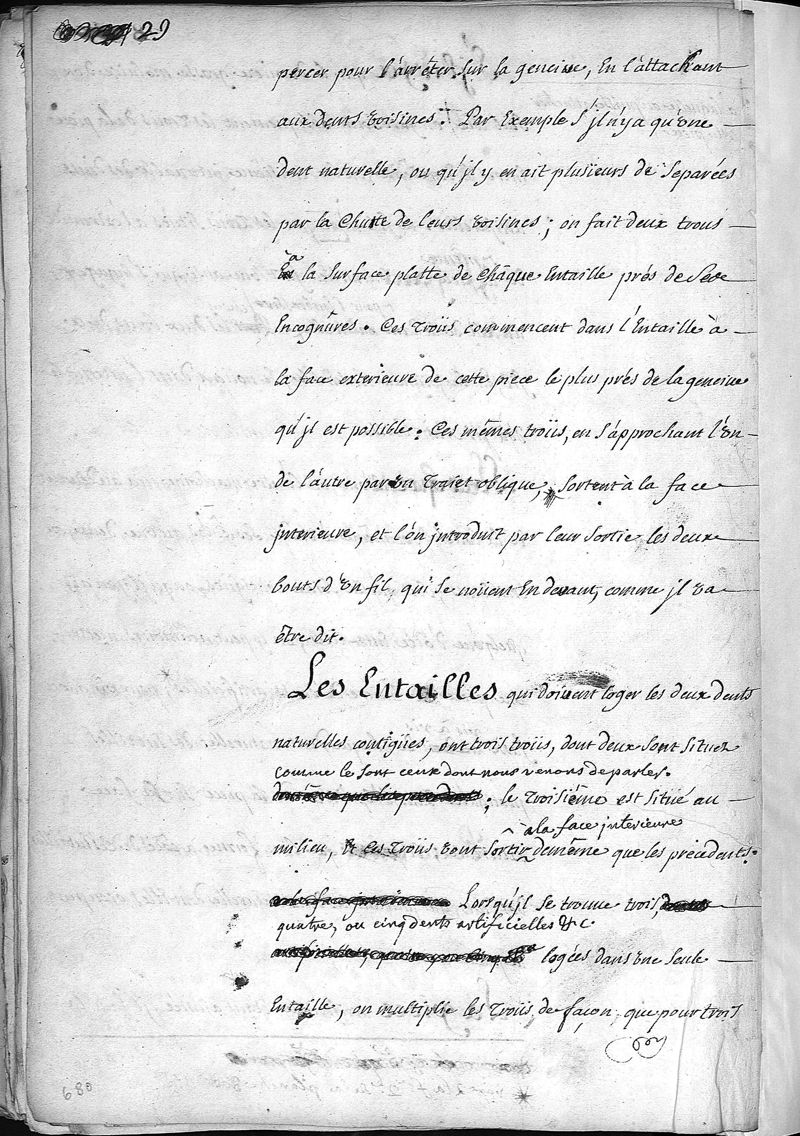 29
percer pour l'arrêter sur la gencive, En l'attachant
aux dents voisines. † Par Exemple S'jl n'y a qu'une
dent naturelle, ou qu'jl y en ait plusieurs de Separées
par la Chute de leurs voisines; on fait deux trous
à
la Surface platte de Châque Entaille prés de Ses
Encognûres. Ces Troüs commencent dans l'Entaille à
la face exterieure de cette piece le plus prés de la gencive
qu'jl est possible. Ces mêmes troüs, en S'approchant l'un
de l'autre par un Trajet oblique, Sortent à la face
jnterieure, et l'ôn jntroduit par leur Sortie les deux
bouts d'un fil, qui Se noüent En devant, comme jl va
être dit.
Les Entailles qui doivent loger les deux dents
naturelles contigües, ont trois troüs, dont deux Sont Situez
comme le Sont ceux dont nous venons de parler.
; le Troisiéme est Situé au
à la face jnterieure
milieu, & Ces Troüs vont Sortir de même que les précedents.
Lorsqu'jl Se trouve trois,
quatre, ou cinq dents artificielles &c.
logées dans une Seule
Entaille, on multiplie les Troüs de façon, que pour trois
680